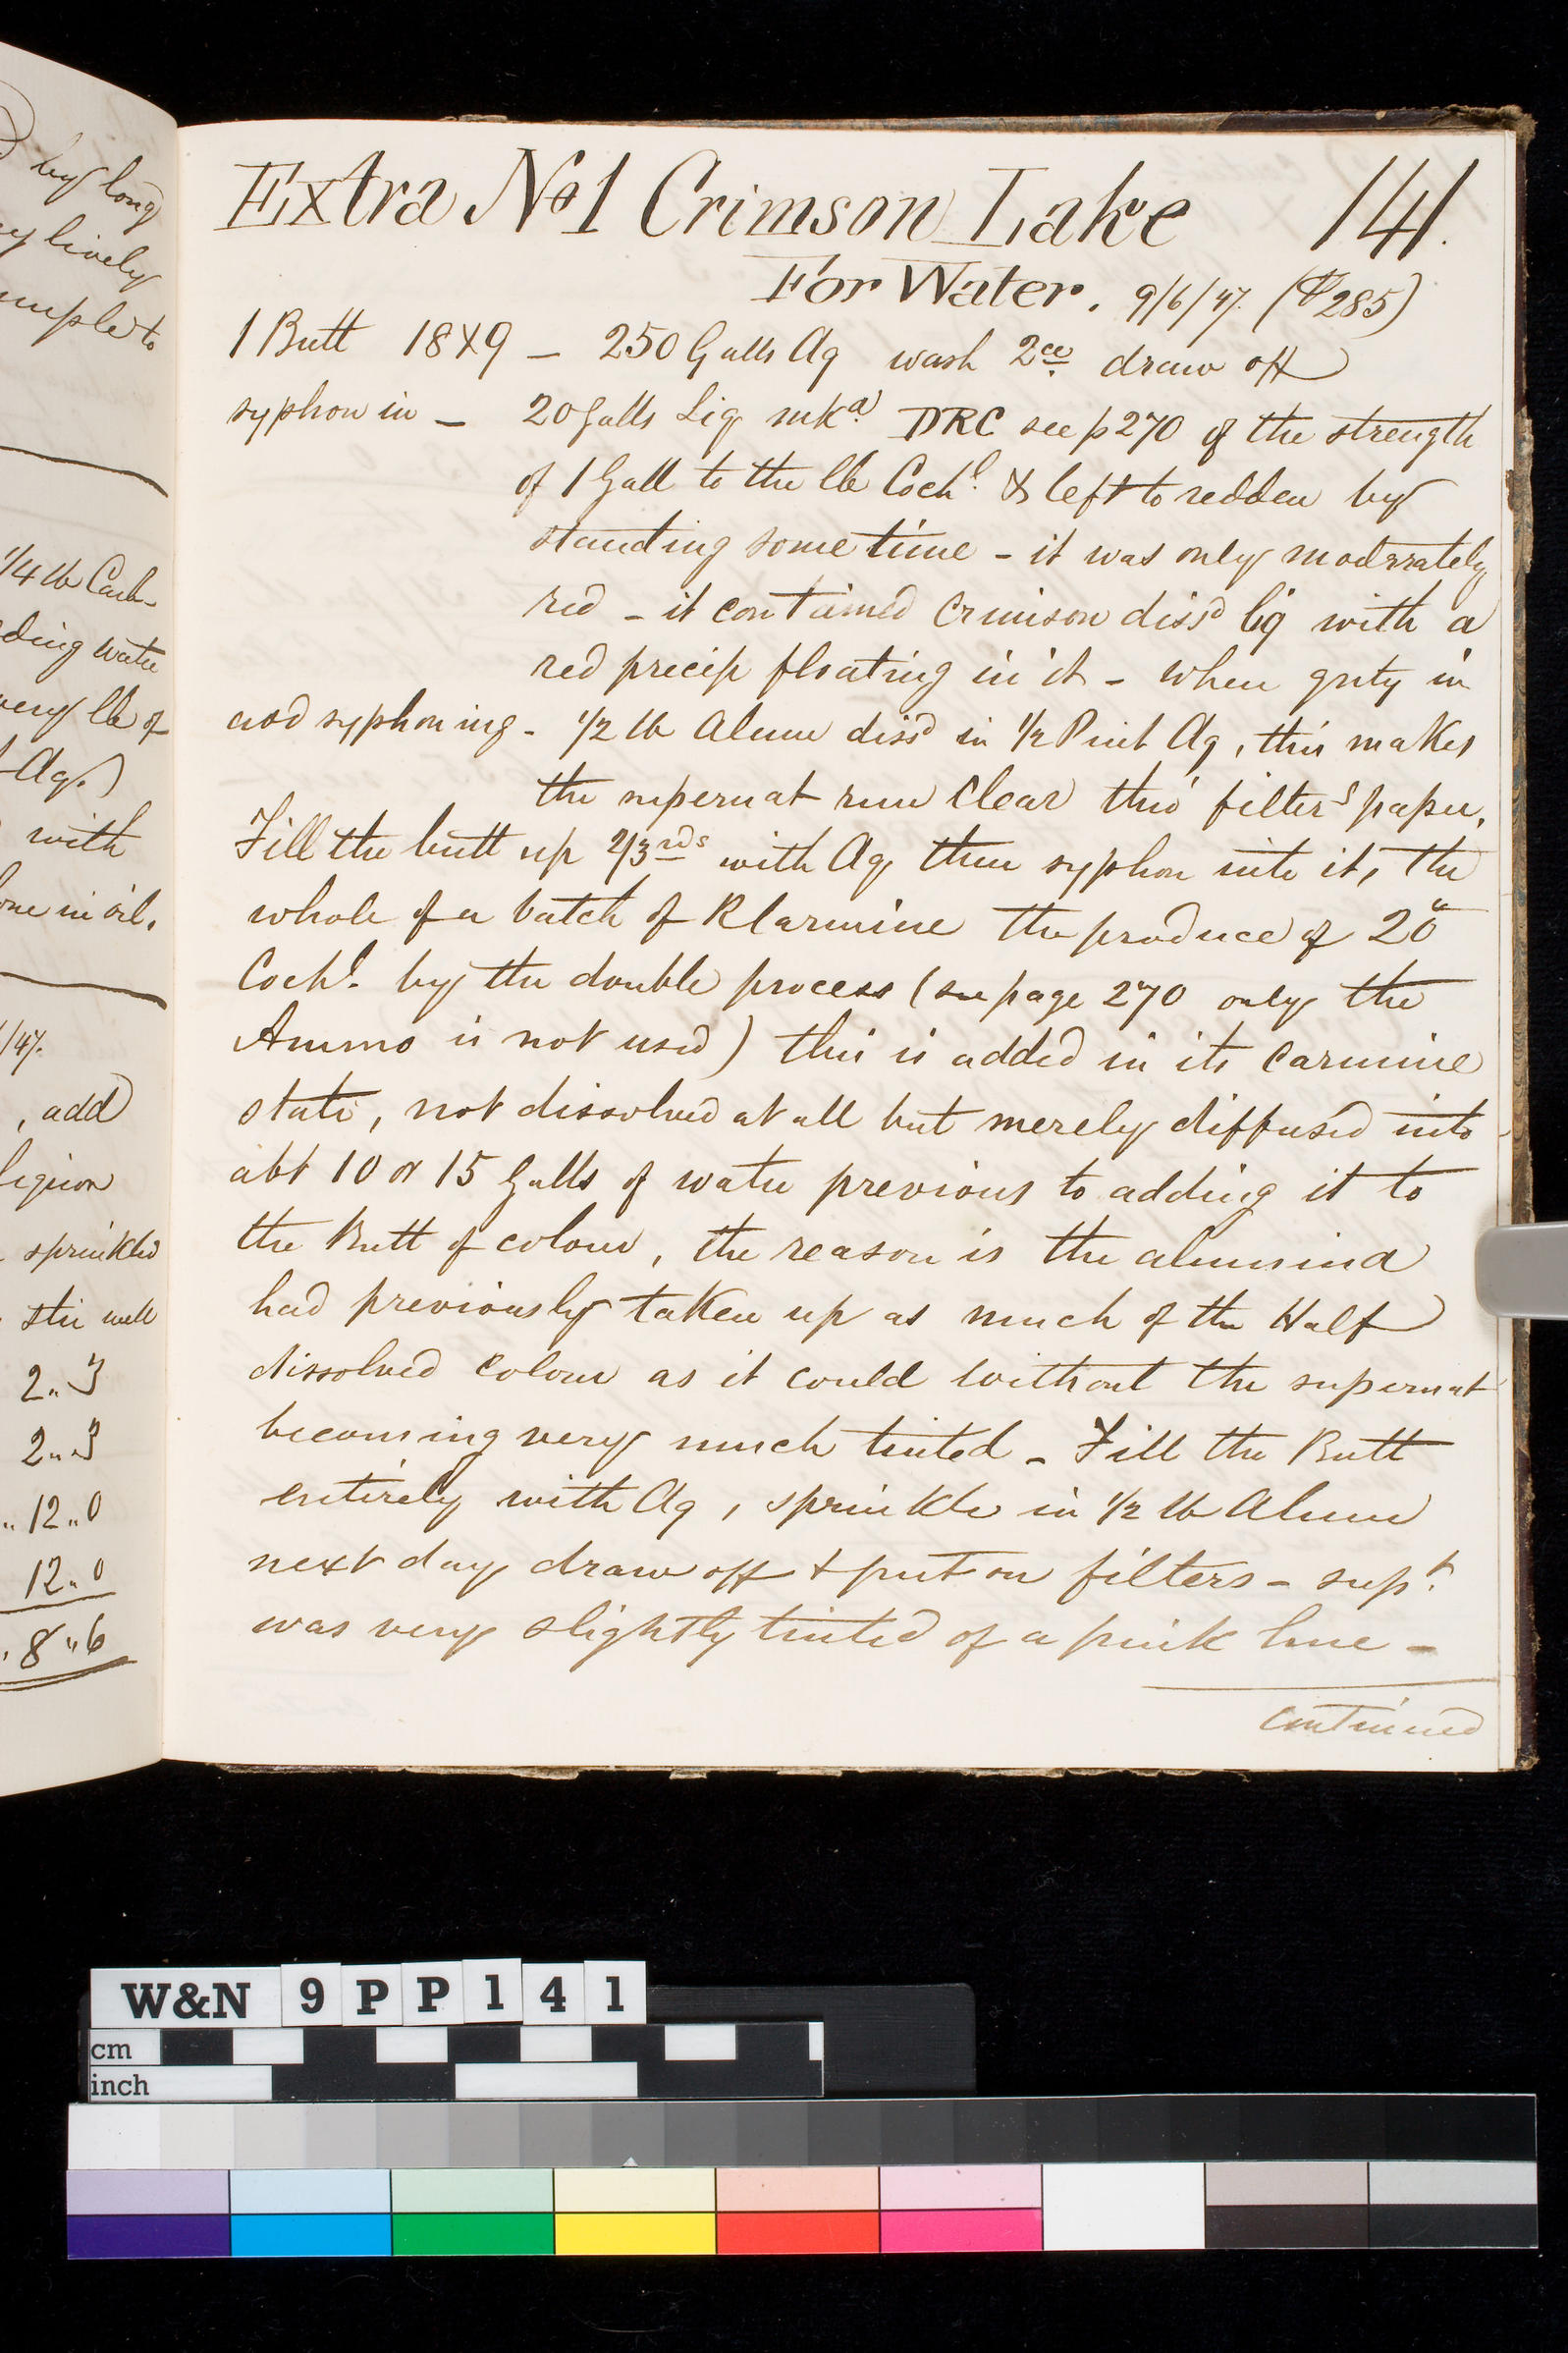 by long
lively
1/4 lb Carb.
ding water
very lb of
Aq.)
with
one in oil.
/47.
, add
sprinkled
stir well
2..3
2..3
.. 12..0
12..0
. 8..6
Extra No1 Crimson Lake 141.
For Water. 9/6/47. (P285)
1 Butt 18X9 – 250 Galls Aq wash 2ce draw off
syphon in – 20 Galls Liq mkd DRC see p270 of the strength
of 1 Gall to the lb Cochl. & left to redden by
standing some time – it was only moderately
red – it contained Crimson dissd liq with a
red precip floating in it – when gnty in
add syphoning – 1/2 lb Alum dissd in 1/2 Pint Aq, this makes
the supernat run clear thro' filterg paper.
Fill the butt up 2/3rds with Aq then syphon into it, the
whole of a batch of Klarmine the produce of 20"
Cochl. by the double process (see page 270 only the
Ammo is not used) this is added in its carmine
state, not dissolved at all but merely diffused into
abt 10 or 15 Galls of water previous to adding it to
the Butt of colour, the reason is the alumina
had previously taken up as much of the Half
dissolved colour as it could without the supernat
becoming very much tinted – Fill the Butt
entirely with Aq, sprinkle in 1/2 lb Alum
next day draw off & put on filters – supt.
was very slightly tinted of a pink hue –
continued
W&N 9PP141
cm
inch